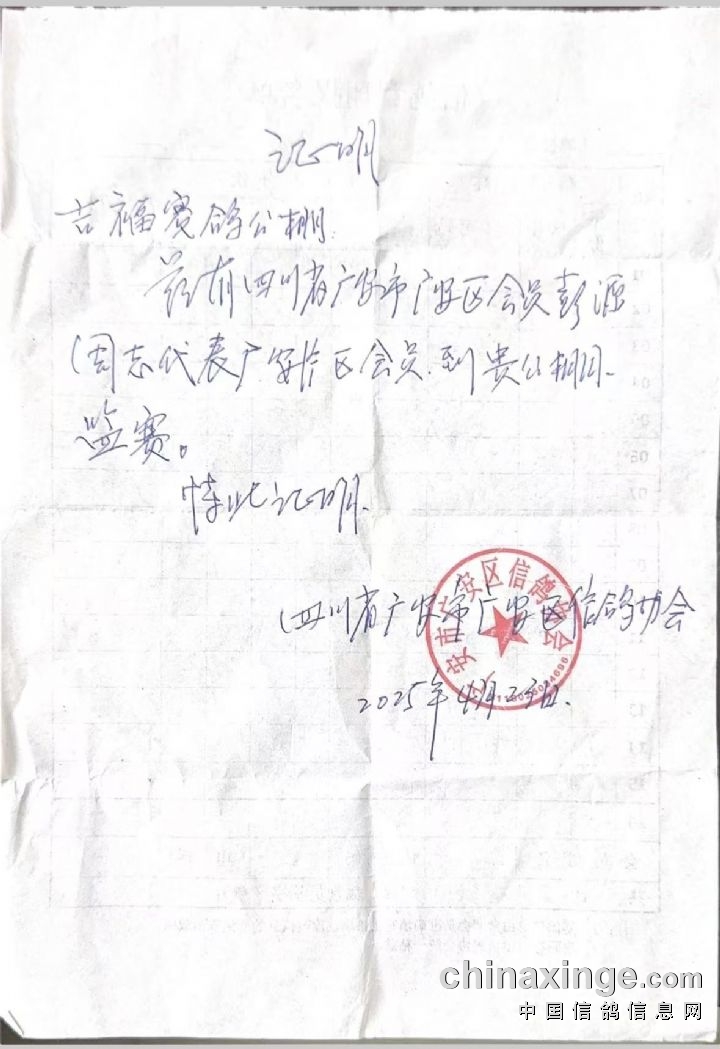 证明
吉福赛鸽公棚:
兹有四川省广安市广安区会员彭源
周志代表广安片区会员.到贵公棚
监赛。
特此证明.
四川省广安市广安区信鸽协会
2025年4月23日.
安市广安区信鸽协会
chinaxinge.com
中国信鸽信息网